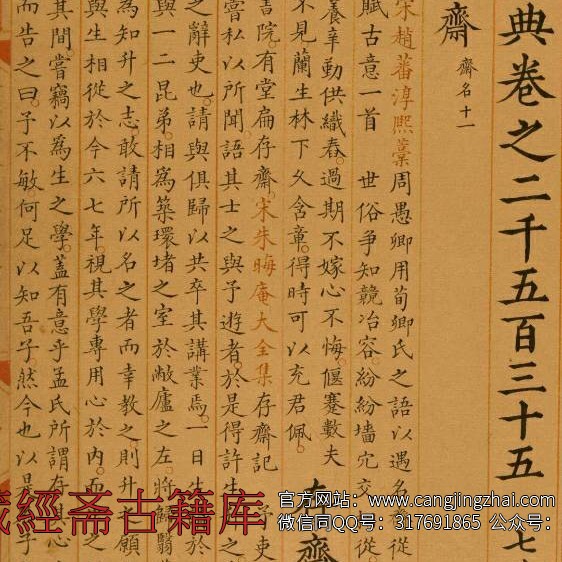 典卷之二千五百三十五 七
齋 齋名十一
宋趙蕃淳熙藁周愚卿用荀卿氏之語以遇名從
賦古意一首 世俗爭知競冶容紛紛墻宂從
養辛勤供織舂。過期不嫁心不悔。偃蹇數夫
不見蘭生林下久含章。得時可以充君佩。 齋
書院。有堂扁存齋。宋朱晦庵大全集存齋記 予吏
嘗私以所聞語其士之與予遊者。於是得許生之
之辭吏也。請與俱歸以共卒其講業焉。一日生於
與一二昆弟。相爲築環堵之室於敝廬之左。將
為知升之志敢請所以名之者而幸教之。則升願
與生相從於今六七年。視其學專用心於內。而之
其間嘗竊以為生之學。蓋有意乎孟氏所謂存心
而告之曰。予不敏。何足以知吾子。然今也以是子
藏經斋古籍库
官方网站：www.cangjingzhai.com
微信同QQ号：317691865 公众号：